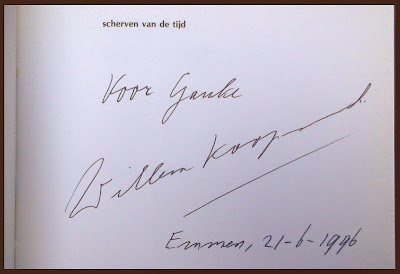 scherven van de tijd
Voor Gauke
Willem Koopmans
Emmen, 21-6-1996